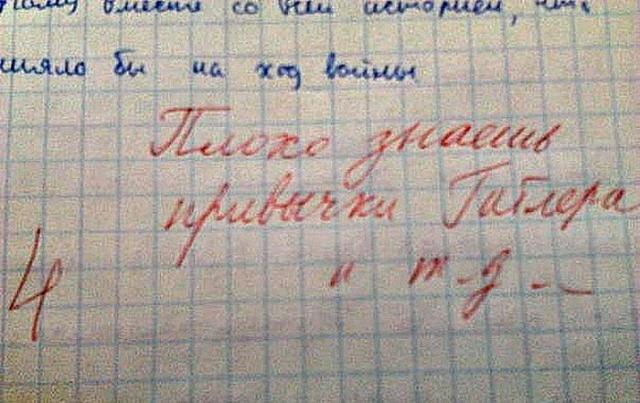 вместе со всей историей, что
ияло бы на ход войны
Плохо знаешь
привычки Гитлера
и т-д--
4